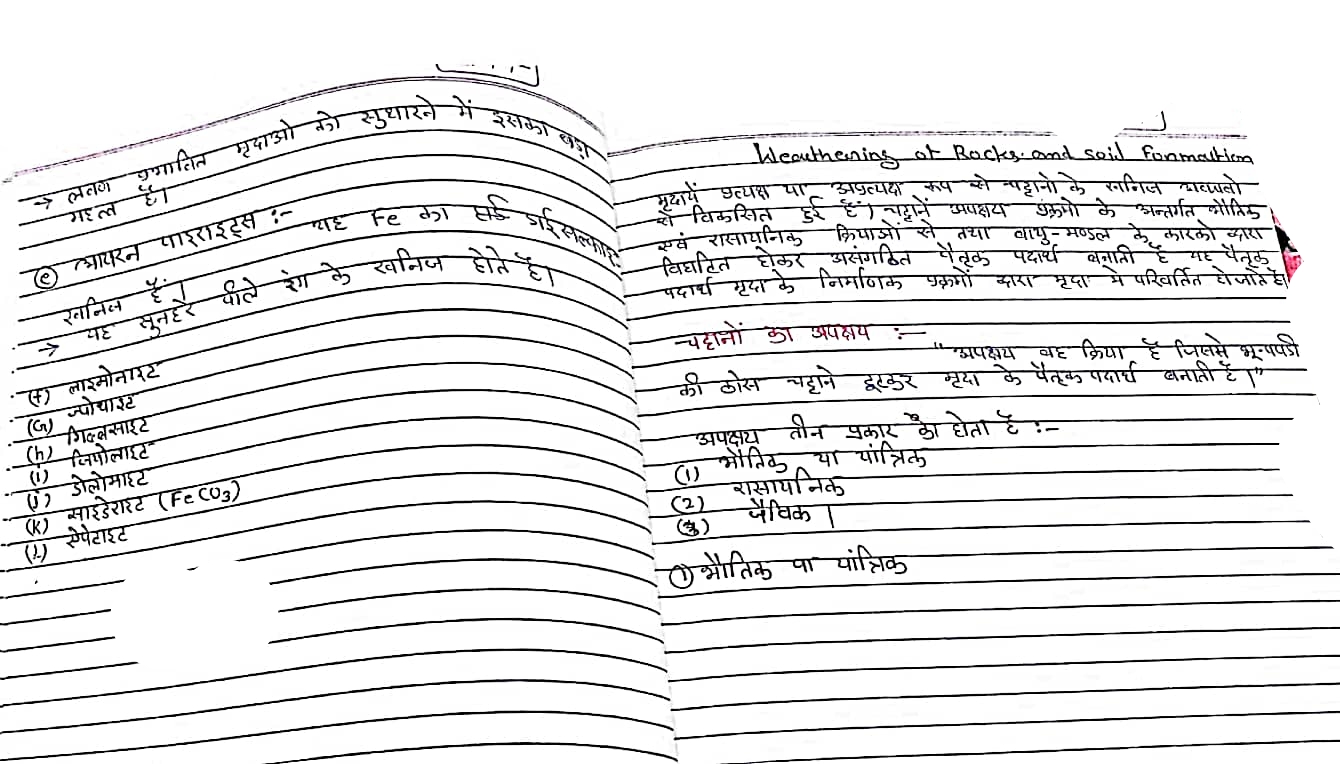 → लवण प्रभावित मृदाओ को सुधारने में इसका बड़ा
महत्व है।
(e) आयरन पाइराइट्स :- यह Fe का डाईसल्फाइड
खनिज हैं।
→ यह सुनहरे पीले रंग के खनिज होते है।
(f) लाइमोनाइट
(G) ज्योथाइट
(h) गिब्बसाइट
(i) जिपोलाइट
(j) डोलोमाइट
(K) साइडेराइट (FeCO3)
(L) ऐपेटाइट
Weauthening of Rocks and soil Formaution
मृदायें प्रत्यक्ष या अप्रत्यक्ष रूप से चट्टानो के खनिज अवयवो
से विकसित हुई हैं। चट्टानें अपक्षय प्रक्रमो के अन्तर्गत भौतिक
एवं रासायनिक क्रियाओं से तथा वायु-मण्डल के कारको द्वारा
विघटित होकर असंगठित पैतृक पदार्थ बनाती है यह पैतृक
पदार्थ मृदा के निर्माणक प्रक्रमों द्वारा मृदा मे परिवर्तित हो जाते है।
चट्टानों का अपक्षय :-
"अपक्षय वह क्रिया है जिसमे भू-पपडी
की ठोस चट्टाने टूटकर मृदा के पैतृक पदार्थ बनाती है।"
अपक्षय तीन प्रकार का होता है :-
(1) भौतिक या यांत्रिक
(2) रासायनिक
(3) जैविक।
① भौतिक या यांत्रिक